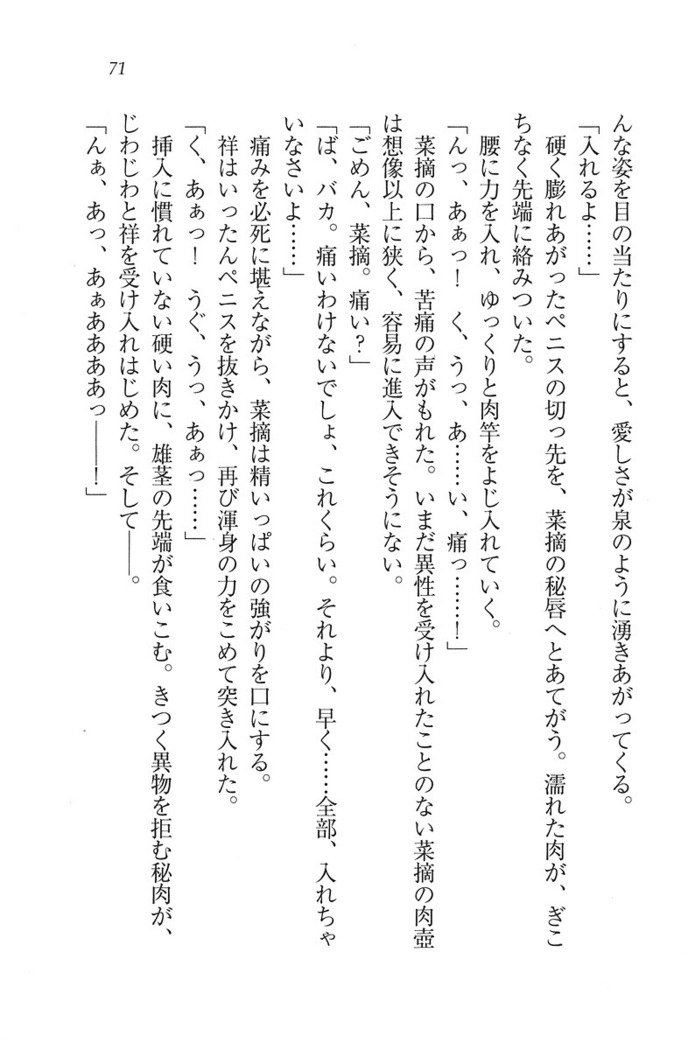 71
んな姿を目の当たりにすると、愛しさが泉のように湧きあがってくる。
「入れるよ……」
硬く膨れあがったペニスの切っ先を、菜摘の秘唇へとあてがう。濡れた肉が、ぎこ
ちなく先端に絡みついた。
腰に力を入れ、ゆっくりと肉竿をよじ入れていく。
「んっ、あぁっ！　く、うっ、あ……い、痛っ……！」
菜摘の口から、苦痛の声がもれた。いまだ異性を受け入れたことのない菜摘の肉壺
は想像以上に狭く、容易に進入できそうにない。
「ごめん、菜摘。痛い？」
「ば、バカ。痛いわけないでしょ、これくらい。それより、早く……全部、入れちゃ
いなさいよ……」
痛みを必死に堪えながら、菜摘は精いっぱいの強がりを口にする。
祥はいったんペニスを抜きかけ、再び渾身の力をこめて突き入れた。
「く、あぁっ！　うぐ、うっ、あぁっ……」
挿入に慣れていない硬い肉に、雄茎の先端が食いこむ。きつく異物を拒む秘肉が、
じわじわと祥を受け入れはじめた。そして――。
「んぁ、あっ、あぁああああっ――！」